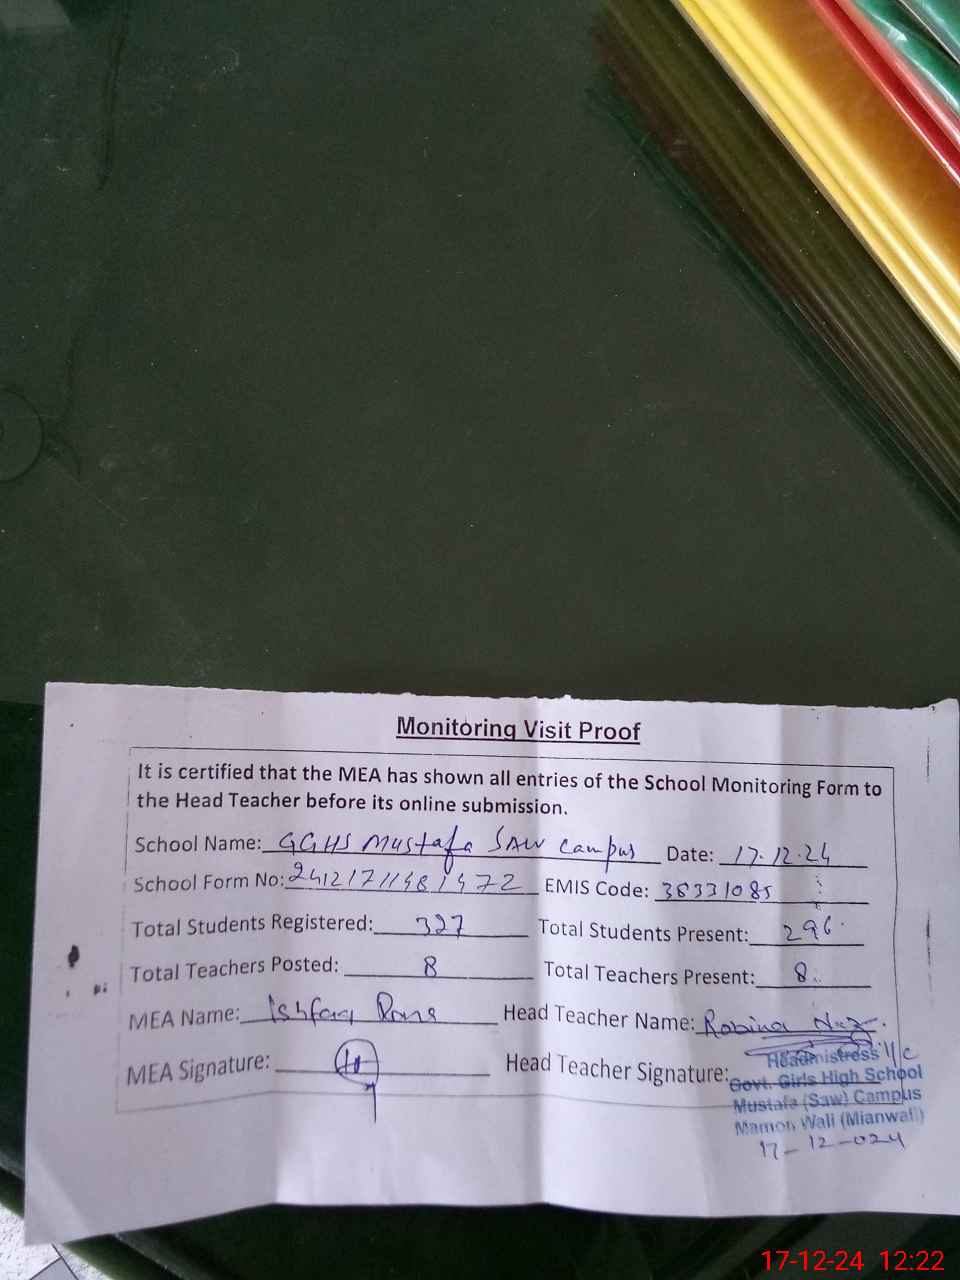 Monitoring Visit Proof
It is certified that the MEA has shown all entries of the School Monitoring Form to
the Head Teacher before its online submission.
School Name: GGHS Mustafa SAW Campus Date: 17.12.24
School Form No: EMIS Code: 38331085
Total Students Registered: 327 Total Students Present: 296
Total Teachers Posted: 8 Total Teachers Present: 8
MEA Name: Ishfaq Head Teacher Name: Robina Naz
MEA Signature: Head Teacher Signature:
Headmistress I/c
Govt. Girls High School
Mustafa (Saw) Campus
Mamon Wali (Mianwali)
17-12-024
17-12-24 12:22